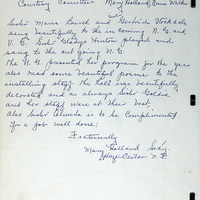 Courtesy Committee Mary Holland, Erma Walker
Sister Mame Burch and Gertrude Stockdale
sang beautifully to the in coming N.G. and
V.G. Sister Gladys Hinton played and
sang to the out going N.G.
The N.G. read her program for the year
also read some beautiful poems to the
installing staff. The hall was beautifully
decorated and as always Sister Goldie
and her staff were at their best,
Also Sister Alveda is to be complimented
for a job well done.
Fraternally
Mary Holland Secy.
Hazel Deaton N.G.